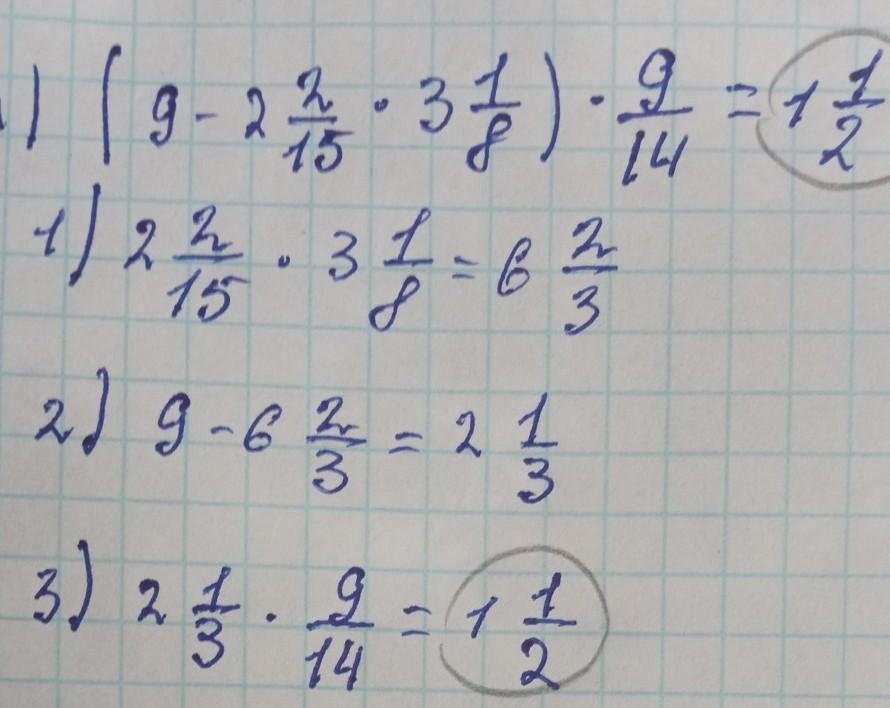 ) (9 - 2 2/15 · 3 1/8) · 9/14 = 1 1/2
1) 2 2/15 · 3 1/8 = 6 2/3
2) 9 - 6 2/3 = 2 1/3
3) 2 1/3 · 9/14 = 1 1/2